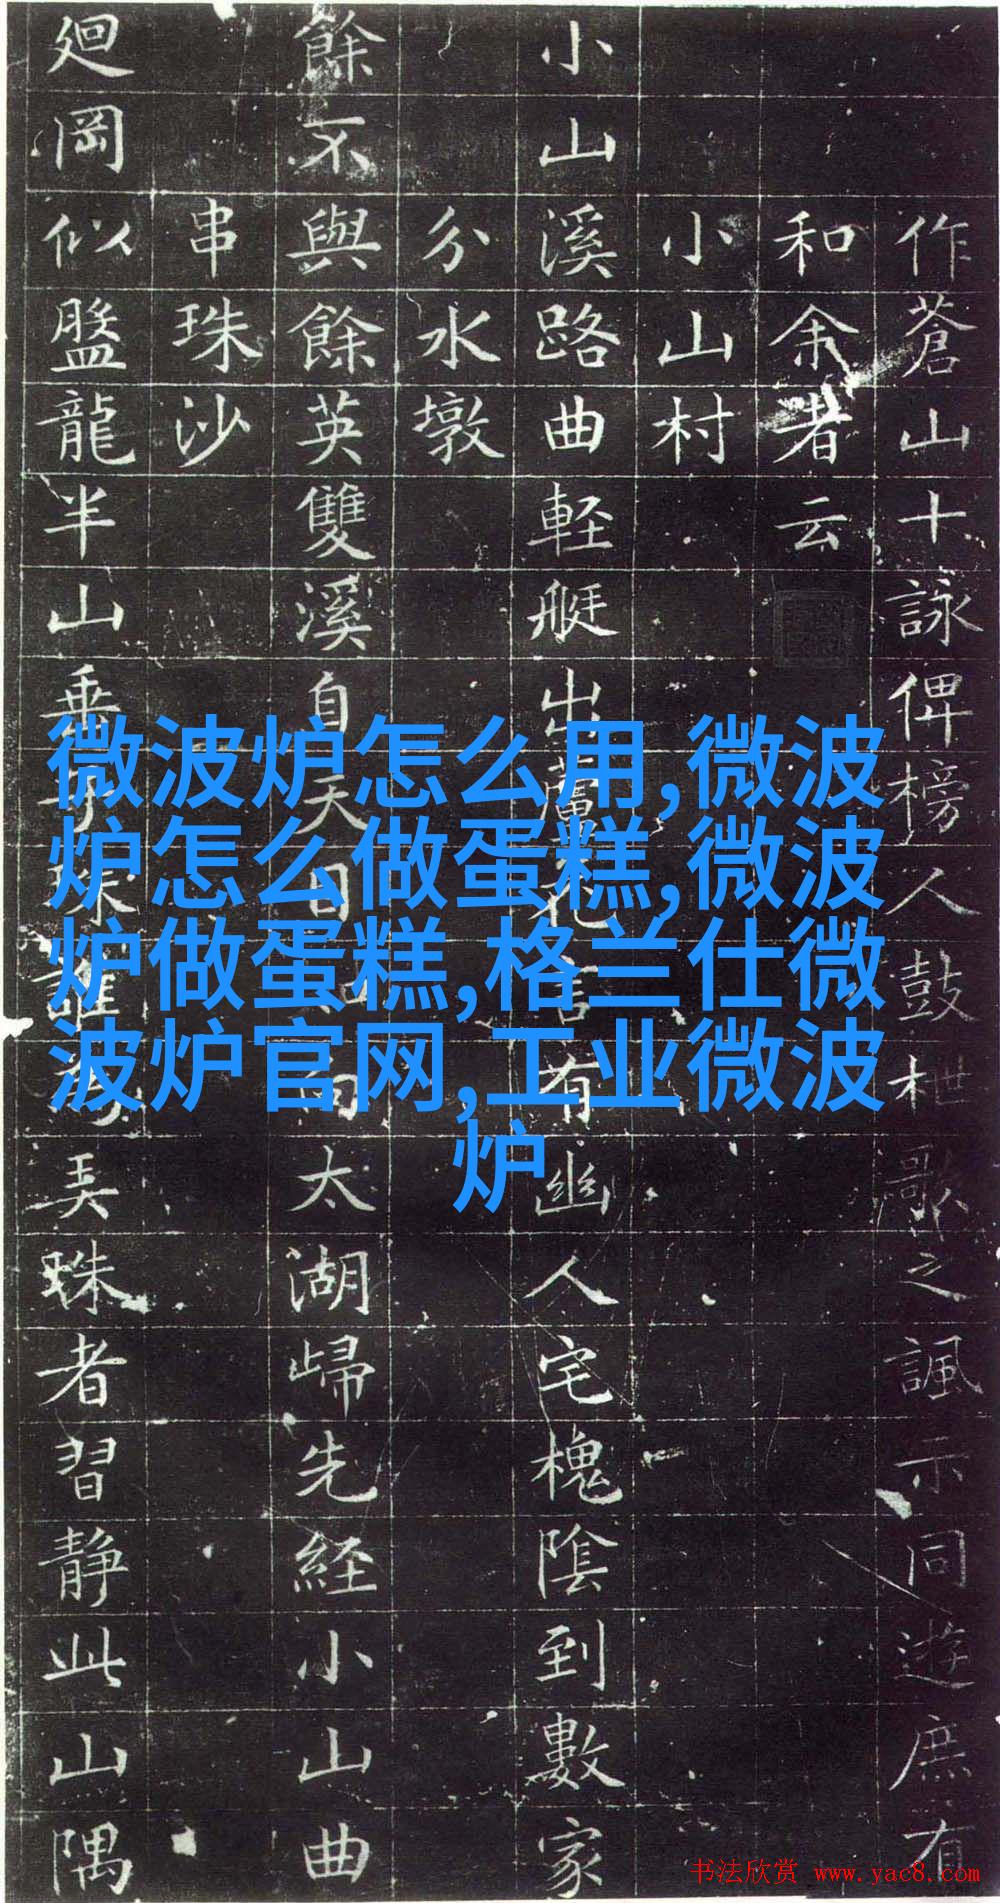 作蒼山十詠俾榜人鼓枻歌之諷示同遊庶有
和余者云
小山村
小山溪路曲軽艇出花言有幽人宅槐陰到數家
分水墩
餘不與餘英雙溪自天目向太湖歸先経小山曲
串珠沙
廻岡似盤龍半山垂珠誰弄珠者習静此山隅
微波炉怎么用,微波
炉怎么做蛋糕,微波
炉做蛋糕,格兰仕微
波炉官网,工业微波
炉
书法欣赏 www.yac8.com